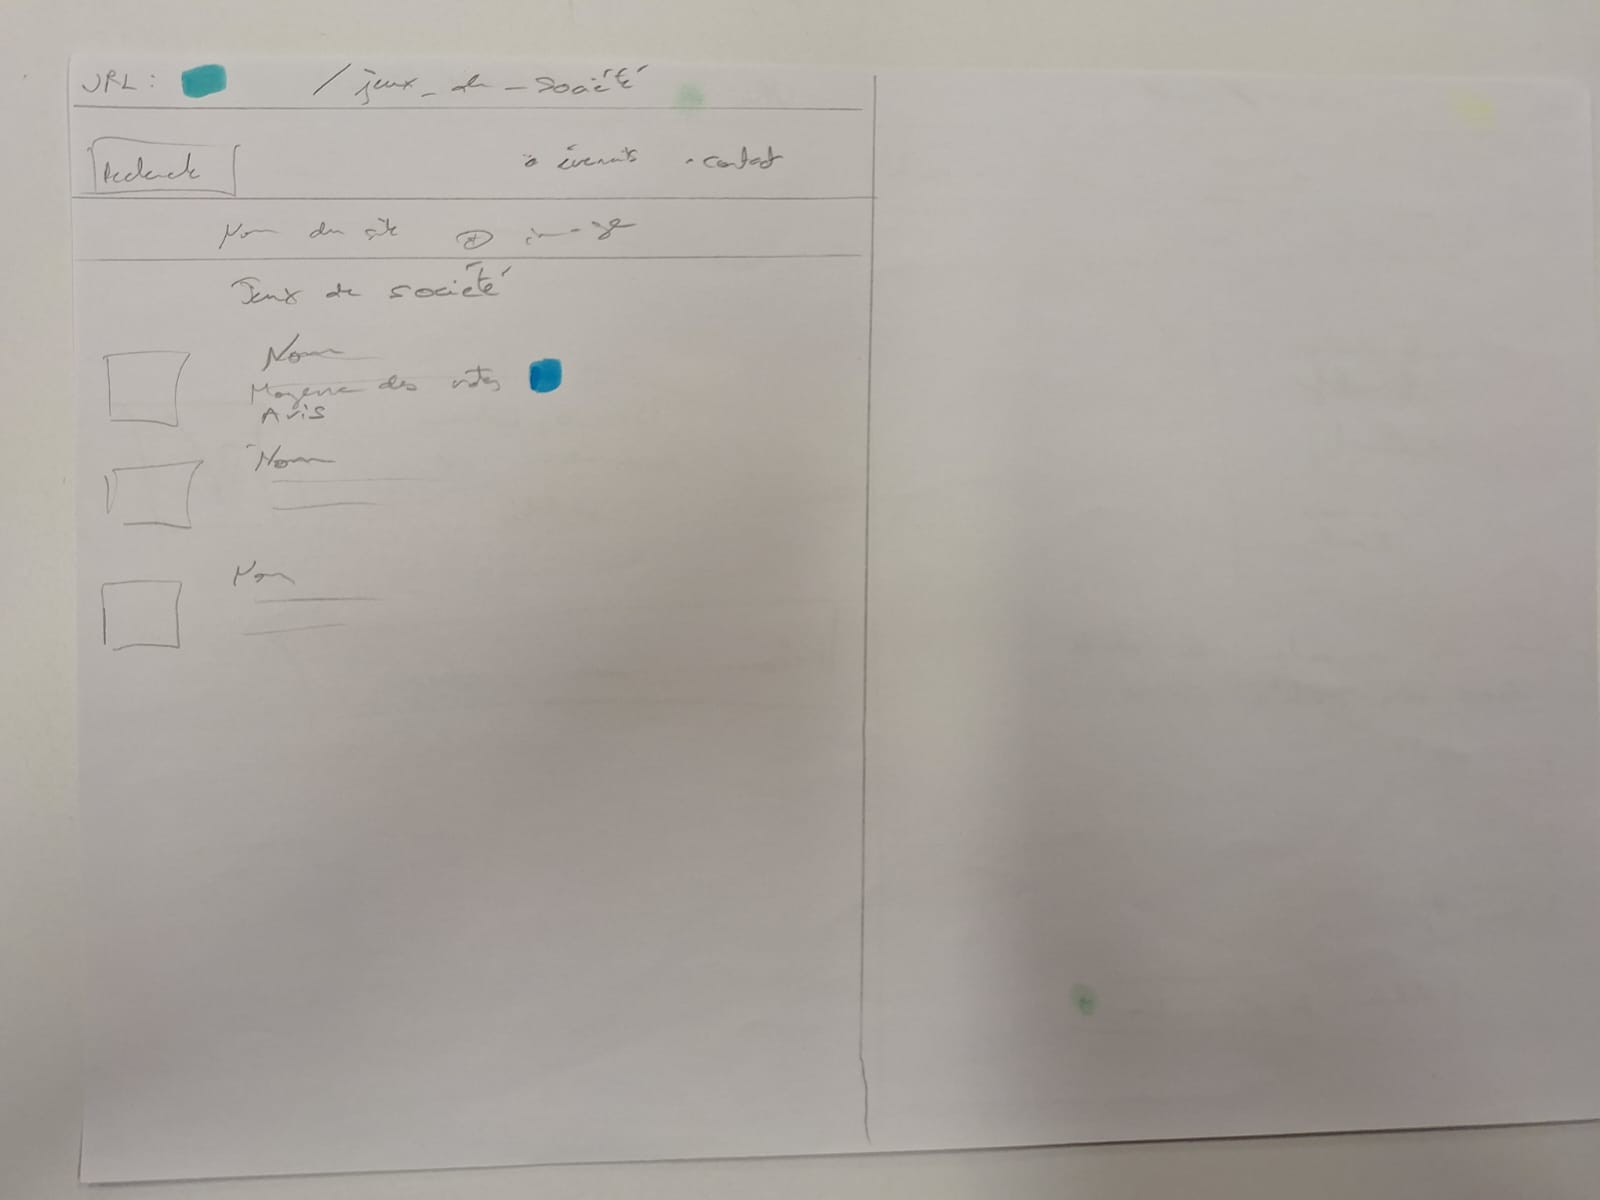 URL : /jeux_de_société
Recherche • évements • contact
Nom du site + image
Jeux de société
Nom
Moyenne des notes
Avis
Nom
Nom